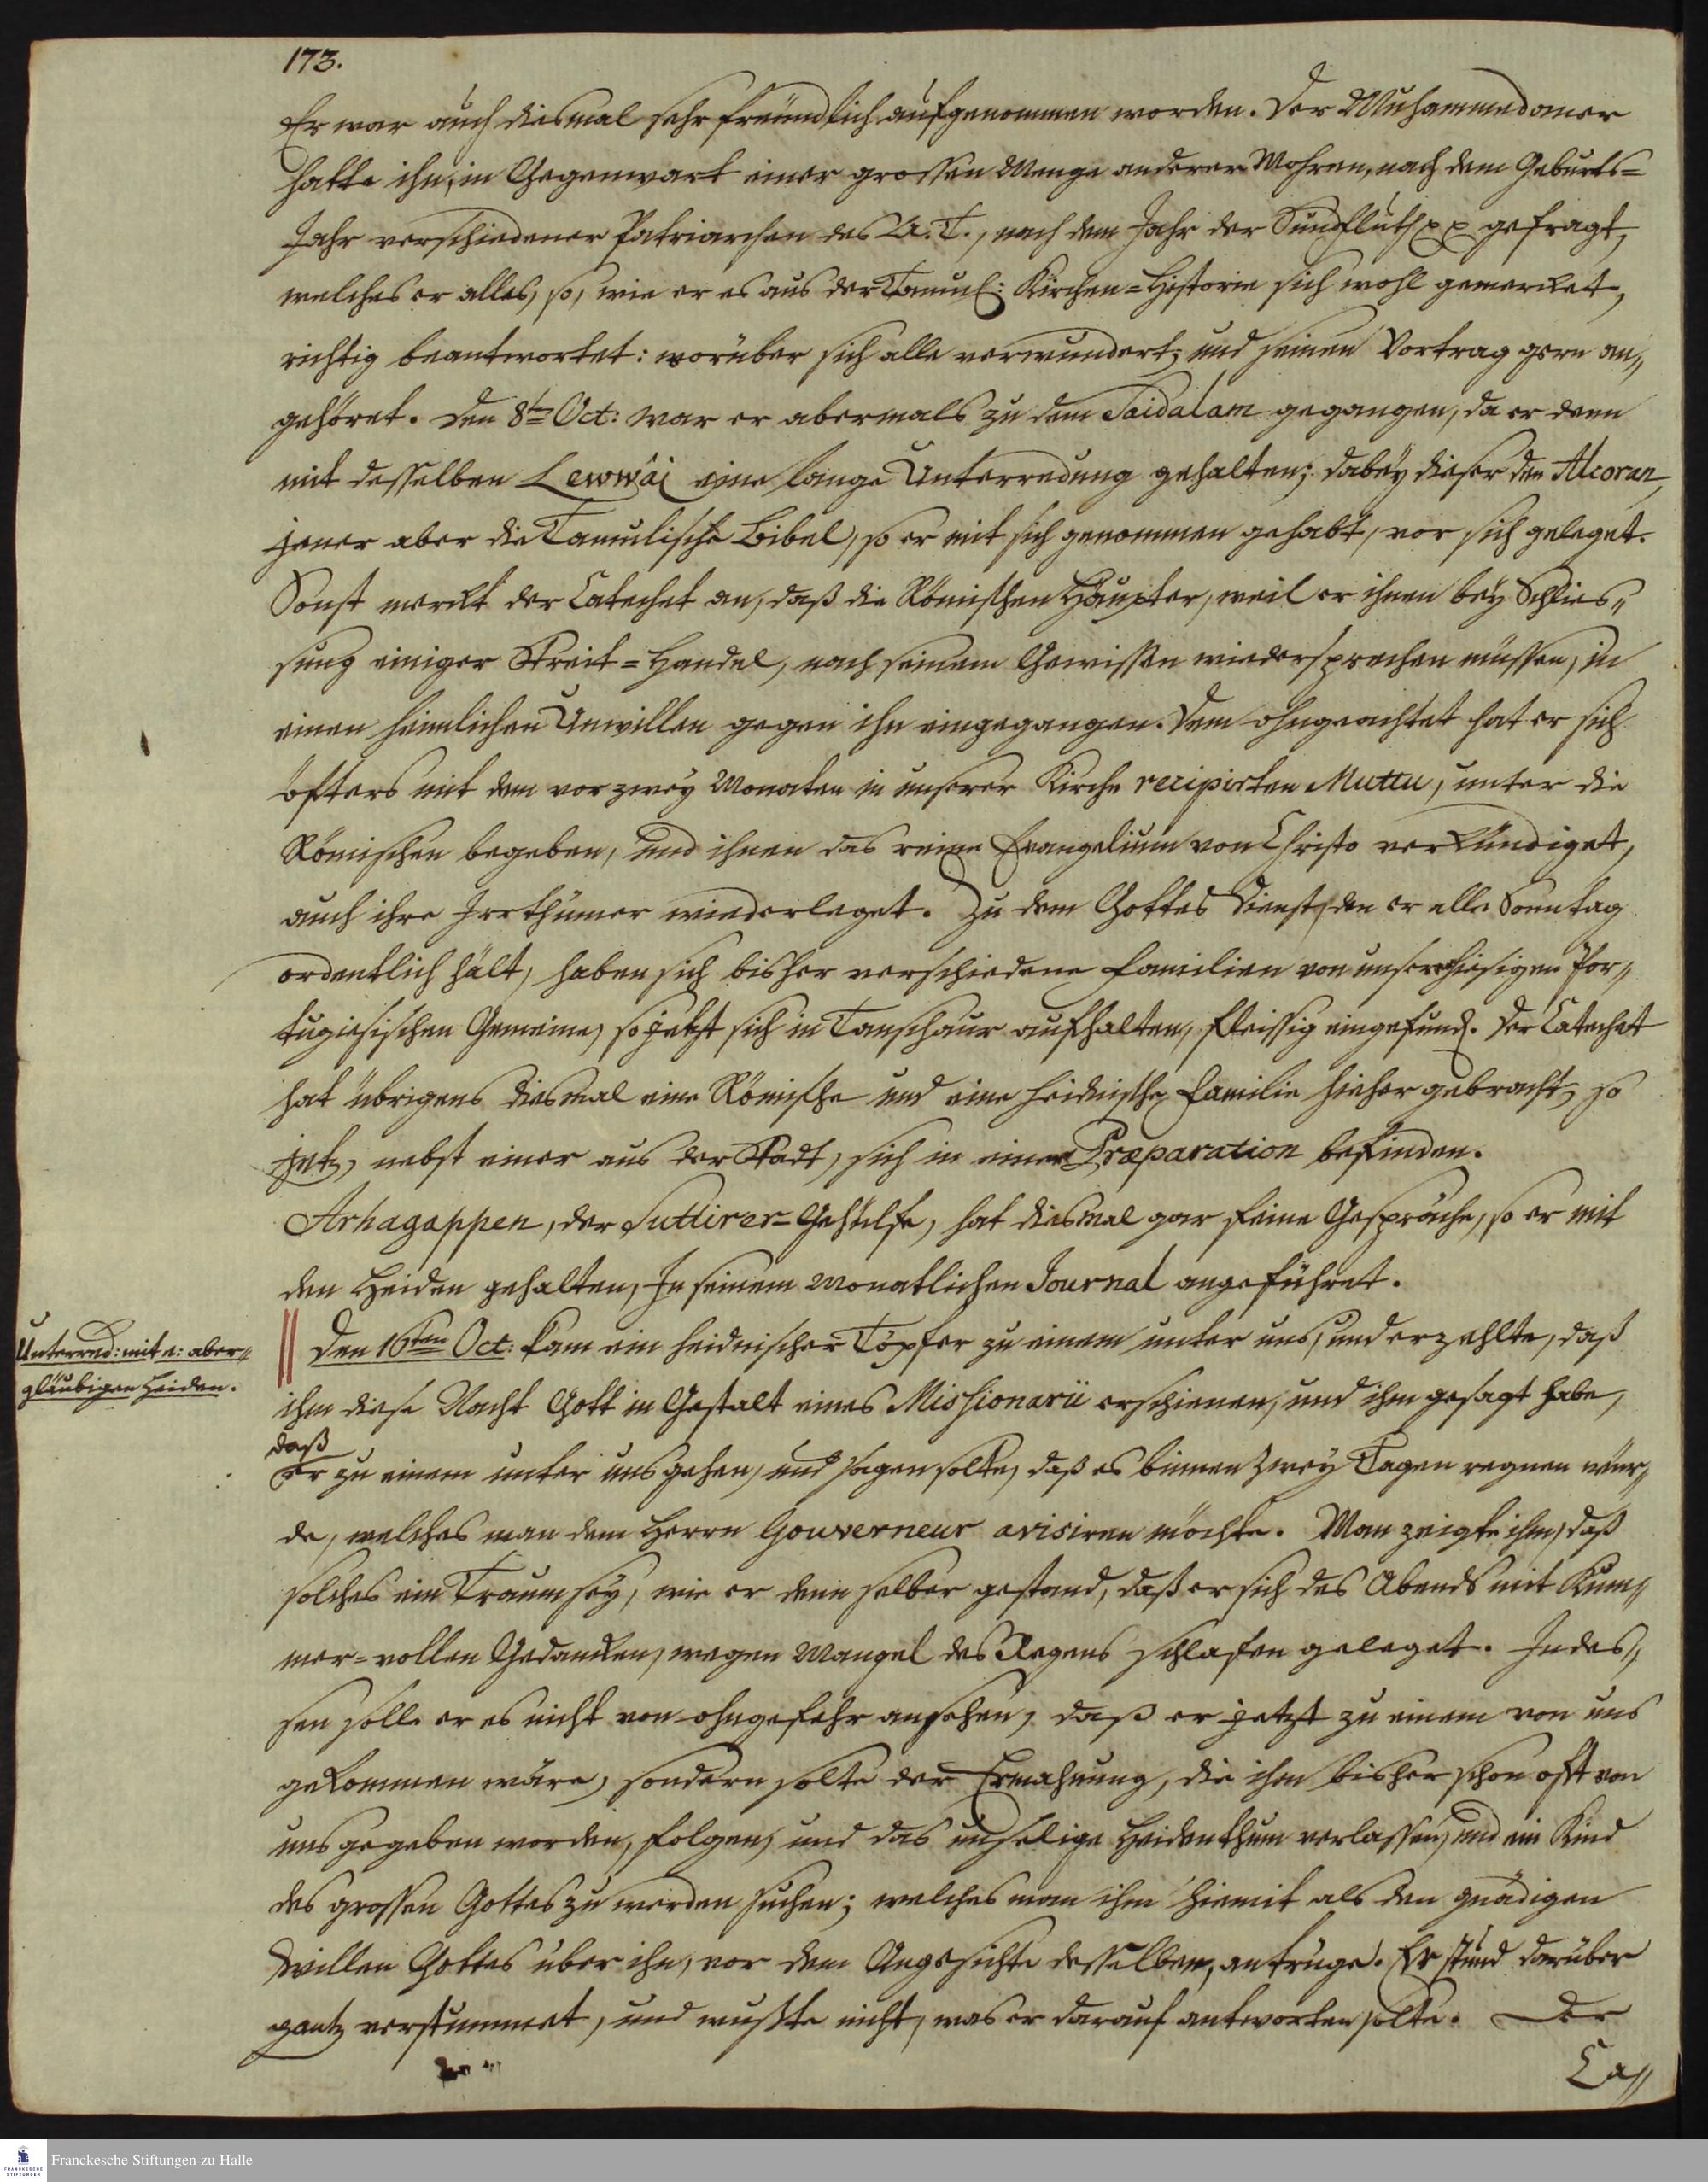 173.
Er war auch diesmal sehr freundlich aufgenommen worden. Der Muhammedaner
hatte ihn, in Gegenwart einer grossen Menge anderer Mohren, nach dem Geburts=
Jahr verschiedener Patriarchen des A. T., nach dem Jahr der Sündfluth pp gefragt,
welches er alles, so, wie er es aus der Tamul: Kirchen=Historie sich wohl gemercket,
richtig beantwortet: worüber sich alle verwundert, und seinen Vortrag gern an„
gehöret. Den 8ten Oct: war er abermals zu dem Saidalam gegangen, da er denn
mit desselben Lewwäi eine lange Unterredung gehalten; dabey dieser den Alcoran,
jener aber die Tamulische Bibel, so er mit sich genommen gehabt, vor sich geleget.
Sonst merckt der Catechet an, daß die Römischen Häupter, weil er ihnen bey Schlies„
sung einiger Streit=Handel, nach seinem Gewissen wiedersprechen müssen, in
einen heimlichen Unwillen gegen ihn eingegangen. Dem ohngeachtet hat er sich
öfters mit dem vor zwey Monaten in unserer Kirche recipirten Muttu, unter die
Römischen begeben, und ihnen das reine Evangelium von Christo verkündiget,
auch ihre Irrthümer wiederleget. Zu dem Gottes Dienst, den er alle Sonntag
ordentlich hält, haben sich bisher verschiedene Familien von unserer hiesigen Por„
tugiesischen Gemeine, so jetzt sich in Tanschaur aufhalten, fleissig eingefund. Der Catechet
hat übrigens diesmal eine Römische und eine heidnische Familie hieher gebracht, so
jetz, nebst einer aus der Stadt, sich in einer Præparation befinden.
Arhagappen, der Suttirer=Gehülfe, hat diesmal gar feine Gespräche, so er mit
den Heiden gehalten, In seinem monatlichen Journal angeführet.
Unterred: mit e: aber„
gläubigen Heiden.
Den 16ten Oct: kam ein heidnischer Töpfer zu einem unter uns, und erzehlte, daß
ihm diese Nacht Gott in Gestalt eines Missionarii erschienen, und ihm gesagt habe,
daß
er zu einem unter uns gehen, und sagen solte, daß es binnen zwey Tagen regnen wür„
de, welches man dem Herrn Gouverneur avisiren möchte. Man zeigte ihm, daß
solches ein Traum sey, wie er denn selber gestand, daß er sich des Abends mit Kum„
mer=vollen Gedancken, wegen Mangel des Regens schlafen geleget. Indes„
sen solle er es nicht von ohngefehr ansehen, daß er jetzt zu einem von uns
gekommen wäre, sondern solte der Ermahnung, die ihm bisher schon offt von
uns gegeben worden, folgen, und das unselige Heidenthum verlassen, und ein Kind
des grossen Gottes zu werden suchen; welches man ihm hiemit als den gnädigen
Willen Gottes über ihn, vor dem Angesichte desselben, antrüge. Er stund darüber
gantz verstummet, und wußte nicht, was er darauf antworten solte. Der
Ca„
Franckesche Stiftungen zu Halle